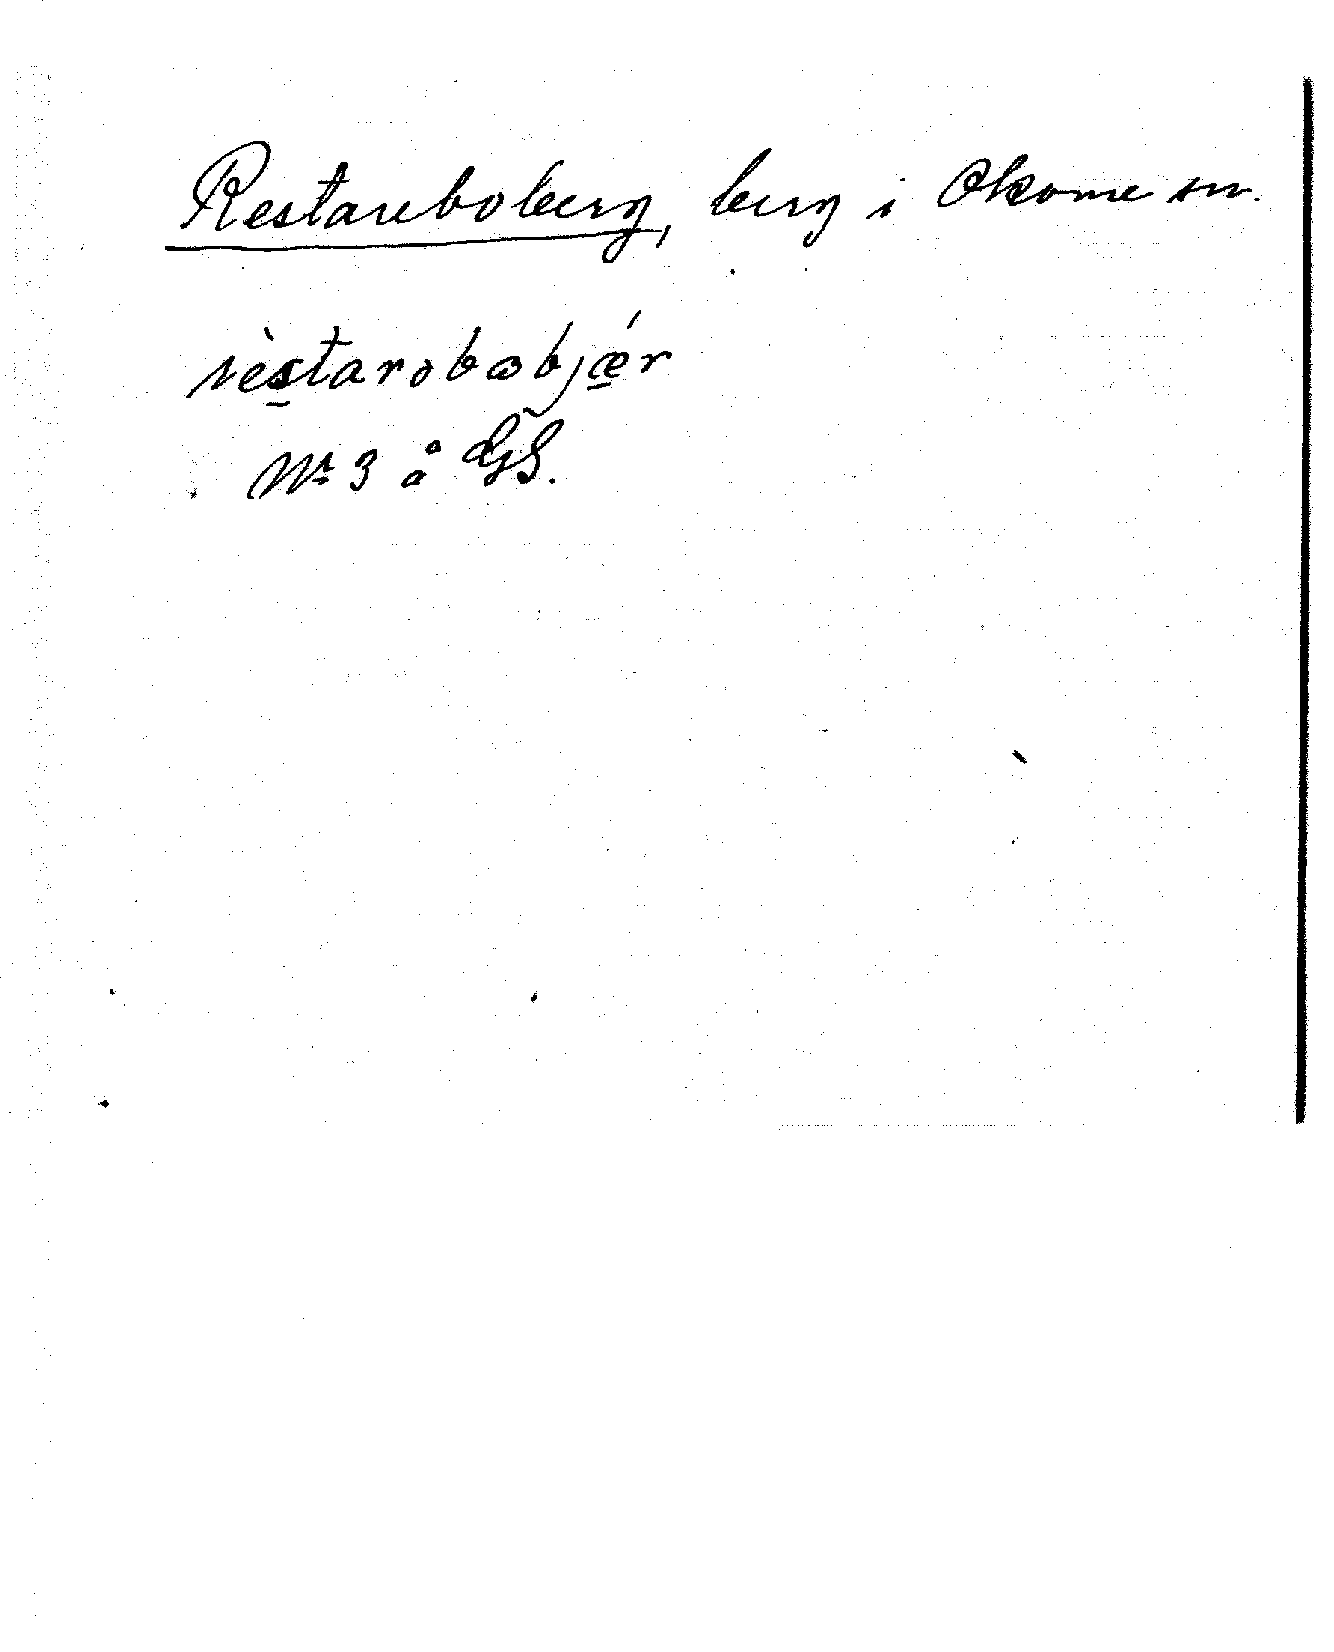 Restareboberg, berg i Okome sn.
rèstarobωbjǽr
Nr 3 å GS.